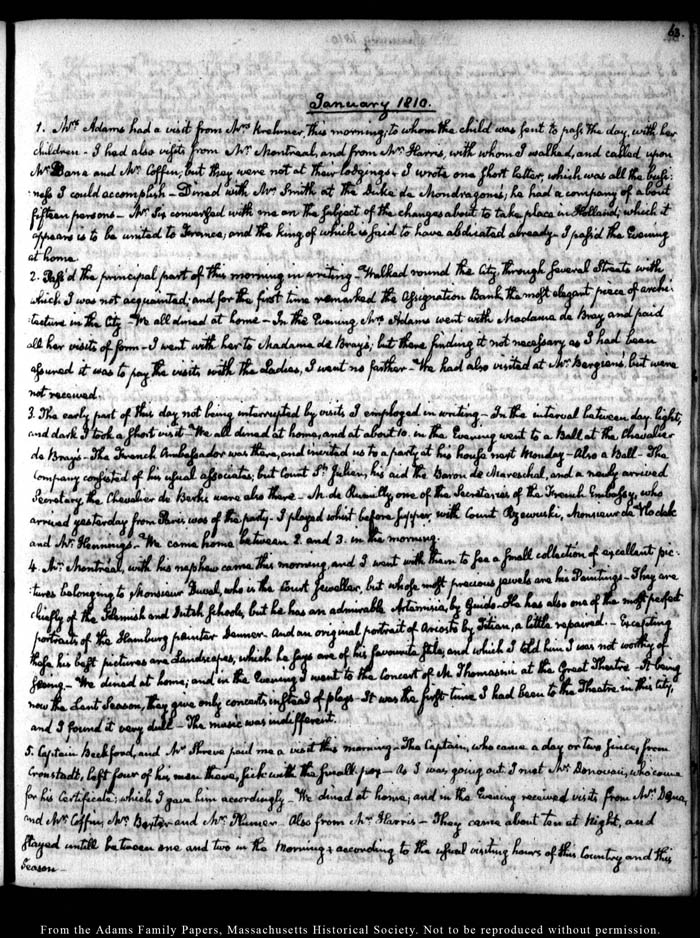 63.
January 1810.
1. Mrs. Adams had a visit from Mrs. Krehmer, this morning; to whom the child was sent to pass the day, with her
children - I had also visits from Mr. Montreal, and from Mr. Harris, with whom I walked, and called upon
Mr. Dana and Mr. Coffin, but they were not at their lodgings. I wrote one short letter, which was all the busi:
ness I could accomplish - Dined with Mr. Smith at the Duke de Mondragone's; he had a company of about
fifteen persons - Mr. Six conversed with me on the subject of the changes about to take place in Holland, which it
appears is to be united to France; and the king of which is said to have abdicated already - I pass'd the Evening
at home.
2. Pass'd the principal part of this morning in writing - Walked round the City, through several Streets with
which I was not acquainted; and for the first time remarked the Assignation Bank, the most elegant piece of archi:
tecture in the City - We all dined at home - In the Evening, Mrs. Adams went with Madame de Bray and paid
all her visits of form - I went with her to Madame de Bray's; but there finding it not necessary as I had been
assured it was to pay the visits with the Ladies, I went no farther - We had also visited at Mr. Bergien's, but were
not received.
3. The early part of this day not being interrupted by visits I employed in writing - In the interval between day light,
and dark I took a short visit - We all dined at home, and at about 10. in the Evening went to a Ball at the Chevalier
de Bray's - The French Ambassador was there, and invited us to a party at his house next Monday - Also a Ball - The
company consisted of his usual associates, but Count St. Julien, his aid the Baron de Mareschal, and a newly arrived
Secretary the Chevalier de Berks were also there - M. de Rumilly, one of the Secretaries of the French Embassy, who
arrived yesterday from Paris was of the party - I played whist before supper, with Count Rzewuski, Monsieur de Vlodek
and Mr. Hennings - We came home between 2. and 3. in the morning.
4. Mr. Montréal, with his nephew came this morning, and I went with them to see a small collection of excellent pic:
:tures belonging to Monsieur Duval, who is the Court Jeweller, but whose most precious jewels are his Paintings - They are
chiefly of the Flemish and Dutch Schools, but he has an admirable Artemisia, by Guido - He has also one of the most perfect
portraits of the Hamburg painter Denner - And an original portrait of Ariosto by Titian, a little repaired - Excepting
these his best pictures are Landscapes, which he says are of his favourite stile, and which I told him I was not worthy of
seeing - We dined at home; and in the Evening I went to the Concert of M. Thomasini at the Great Theatre - It being
now the Lent Season, they give only concerts instead of plays - It was the first time I had been to the Theatre in this City,
and I found it very dull - The music was indifferent.
5. Captain Beckford, and Mr. Shreve paid me a visit this morning - The Captain, who came a day or two since, from
Cronstadt, left four of his men there, sick with the small pox - As I was going out I met Mr. Donovan, who came
for his Certificate; which I gave him accordingly - We dined at home; and in the Evening received visits from Mr. Dana,
and Mr. Coffin, Mr. Baxter and Mr. Plumer - Also from Mr. Harris - They came about ten at Night, and
stayed untill between one and two in the Morning; according to the usual visiting hours of this Country and this
Season -
From the Adams Family Papers, Massachusetts Historical Society. Not to be reproduced without permission.